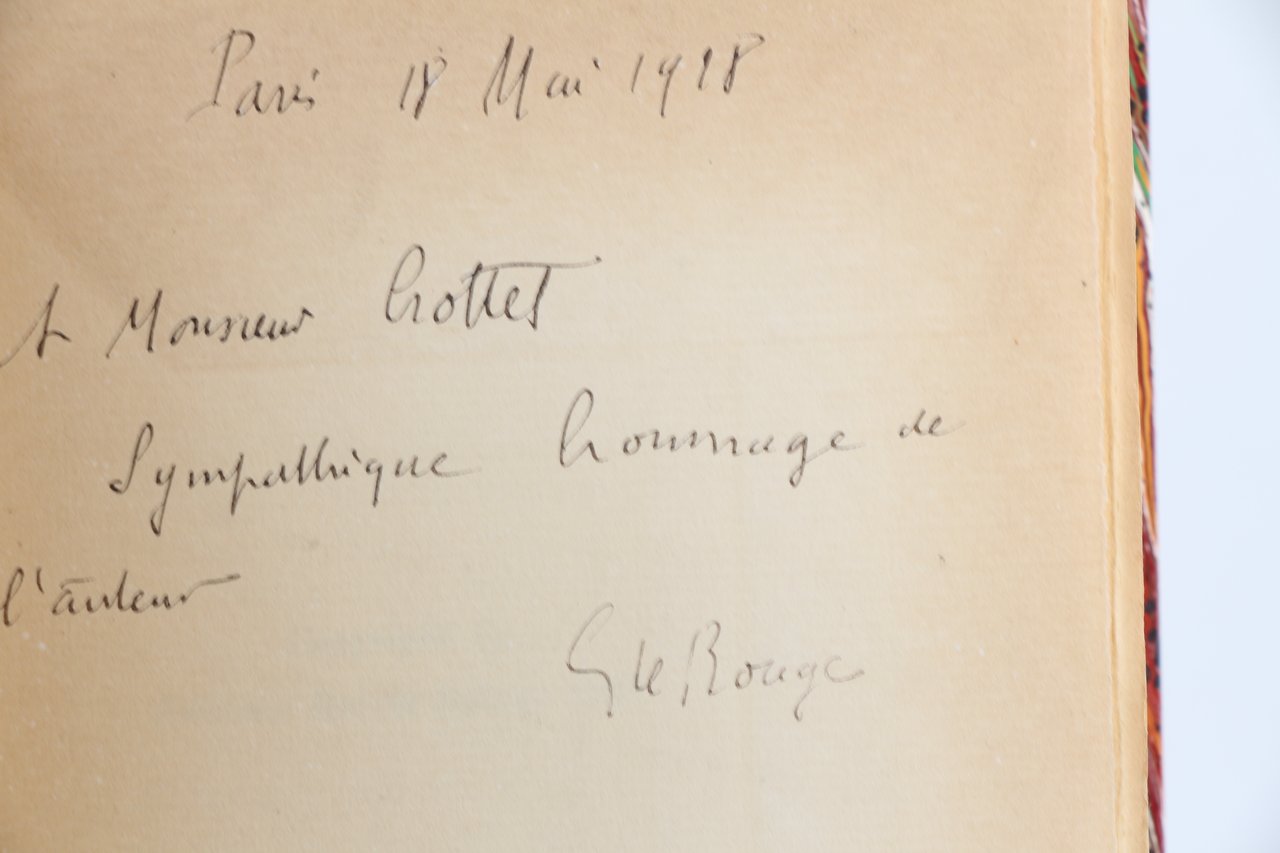 Paris 18 Mai 1918
A Monsieur
Sympathique hommage de
l'auteur
G Le Rouge